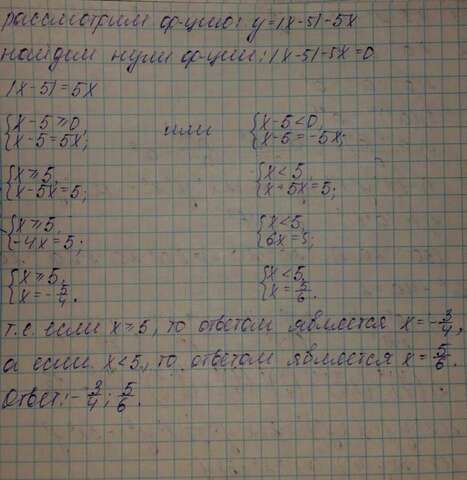 рассмотрим ф-цию: y=|x-5|-5x
найдем нули ф-ции: |x-5|-5x=0
|x-5|=5x
{x-5≥0, или {x-5<0,
{x-5=5x; {x-5=-5x;
{x≥5, {x<5,
{x-5x=5; {x+5x=5;
{x≥5, {x<5,
{-4x=5; {6x=5;
{x≥5, {x<5,
{x=-5/4. {x=5/6.
т.е. если x≥5, то ответом является x=-3/4,
а если x<5, то ответом является x=5/6.
Ответ: -3/4; 5/6.